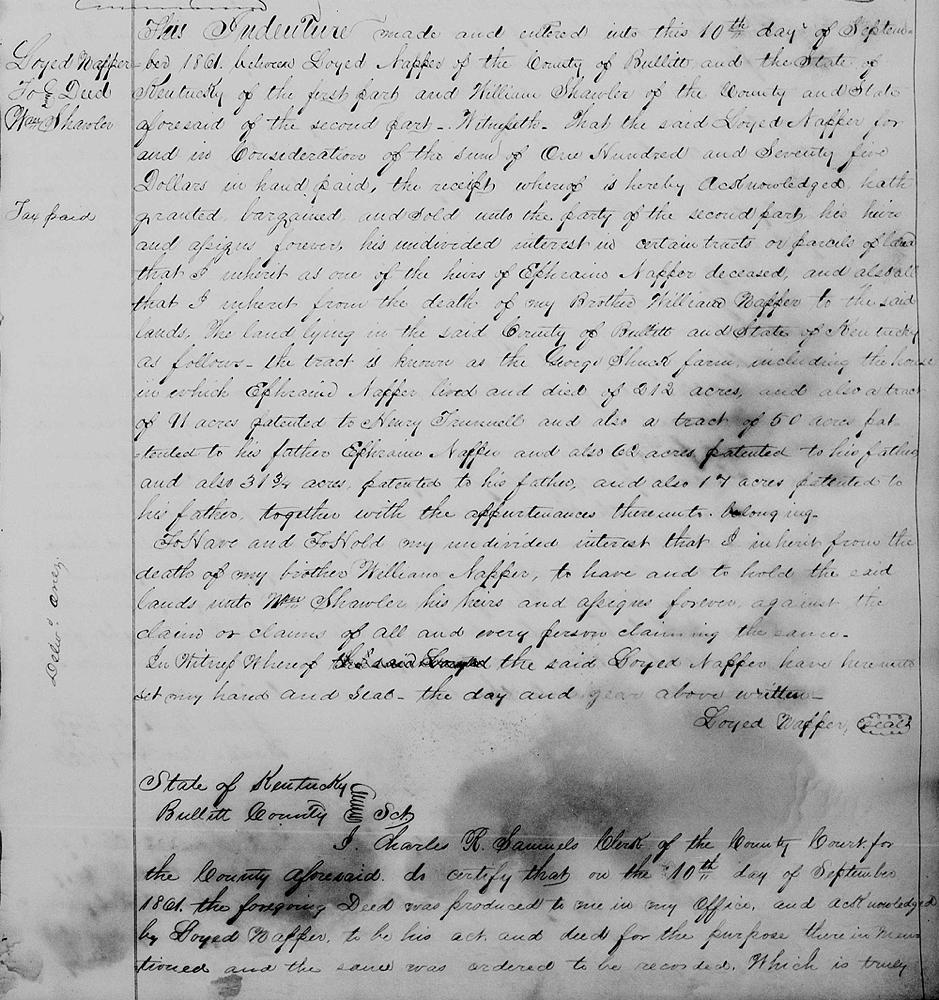 This Indenture made and entered into this 10th day of Septem-
Loyed Napper
To } Deed
Wm Shawler
ber 1861. between Loyed Napper of the County of Bullitt and the State of
Kentucky of the first part and William Shawler of the County and State
aforesaid of the second part - Witnesseth - That the said Loyed Napper for
and in Consideration of the sum of One Hundred and Seventy five
Dollars in hand paid, the receipt whereof is hereby acknowledged, hath
Tax paid
granted, bargained, and sold unto the party of the second part, his heirs
and assigns forever, his undivided interest in certain tracts or parcels of land
that I inherit as one of the heirs of Ephraim Napper deceased, and also all
that I inherit from the death of my Brother William Napper to the said
lands, the land lying in the said County of Bullitt and State of Kentucky
as follows - the tract is known as the George Shuck farm, including the house
in which Ephraim Napper lived and died of 212 acres, and also a tract
of 91 acres patented to Henry Trunnell and also a tract of 50 acres pat
-tented to his father Ephraim Napper and also 62 acres patented to his father,
and also 31 3/4 acres, patented to his father, and also 17 acres patented to
his father, together with the appurtenances thereunto belonging-
To Have and To Hold my undivided interest that I inherit from the
death of my brother William Napper, to have and to hold the said
lands unto Wm Shawler his heirs and assigns forever, against the
claim or claims of all and every person claiming the same -
In Witness Whereof the said Loyed the said Loyed Napper have hereunto
set my hand and seal - the day and year above written -
Loyed Napper, Seal
State of Kentucky
Bullitt County } Sct
I. Charles R. Samuels Clerk of the County Court for
the County aforesaid. do certify that on the 10th day of September
1861. the foregoing Deed was produced to me in my Office, and acknowledged
by Loyed Napper, to be his act and deed for the purpose therein men
tioned and the same was ordered to be recorded. Which is truly